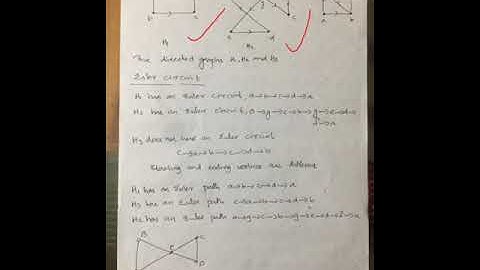 b c
c d
a b
H1
H2
The directed graphs H1, H2 and H3
Euler circuit
H1 has an Euler circuit, a→b→c→d→a
H2 has an Euler circuit, a→g→c→b→g→e→d→
f→a
H3 does not have an Euler circuit
c→a→b→c→d→b
Starting and ending vertices are different
H1 has an Euler path a→b→c→d→a
H3 has an Euler path c→a→b→c→d→b
H2 has an Euler path a→g→c→b→g→e→d→f→a
B
C
D